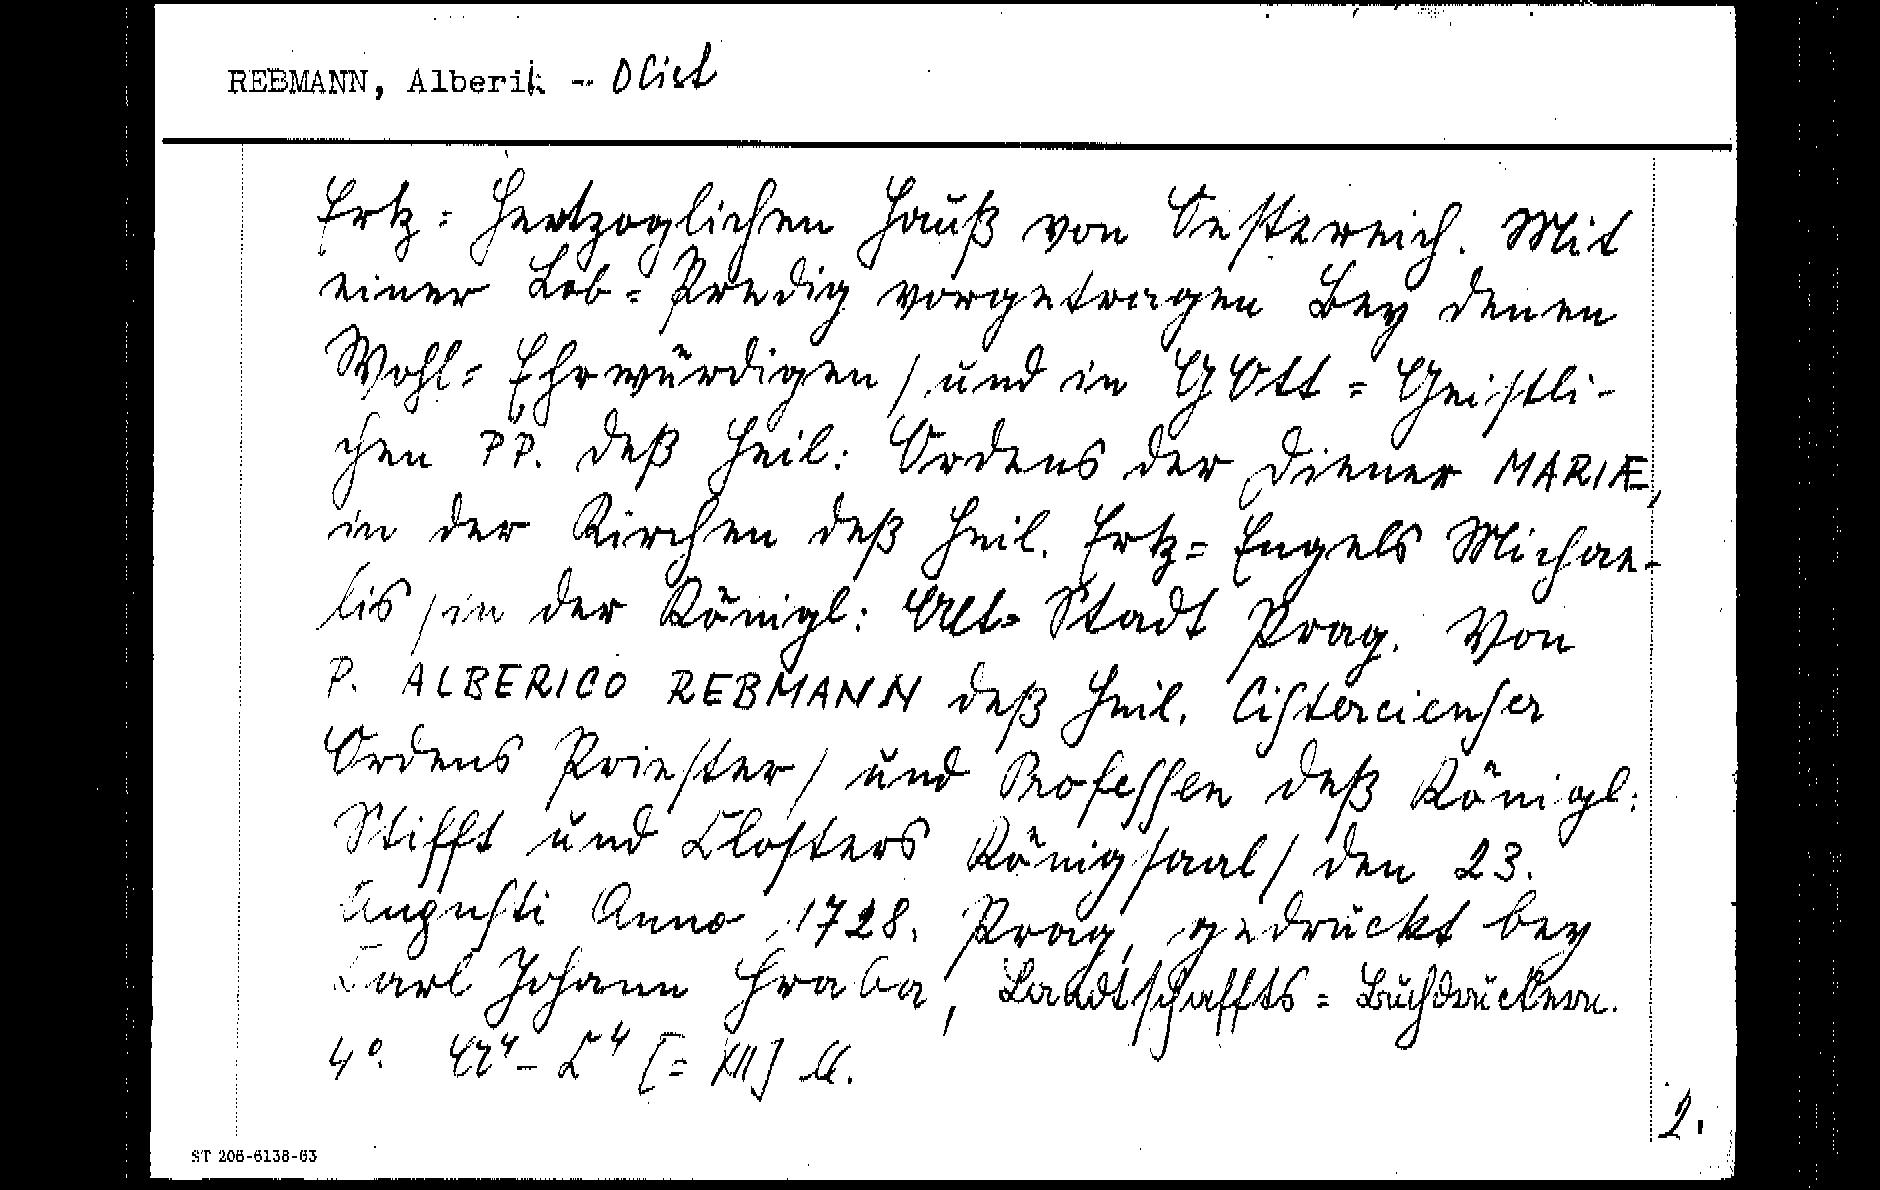 REBMANN, Alberik - OCist
Ertz= Hertzoglichen Hauß von Oesterreich. Mit
einer Lob= Predig vorgetragen Bey denen
Wohl= Ehrwürdigen / und in GOtt= Geistli-
chen PP. deß Heil: Ordens der Diener MARIÆ,
in der Kirchen deß Heil. Ertz= Engels Michae-
lis / in der Königl: Alt= Stadt Prag. Von
P. ALBERICO REBMANN deß Heil. Cistercienser
Ordens Priester / und Professen deß Königl:
Stifft und Closters Königsaal / den 23.
Augusti Anno 1728. Prag, gedruckt bey
Carl Johann Hraba, Landtschaffts= Buchdruckern.
4°. A⁴ - C⁴ [= XII] ll.
2.
ST 206-6138-63